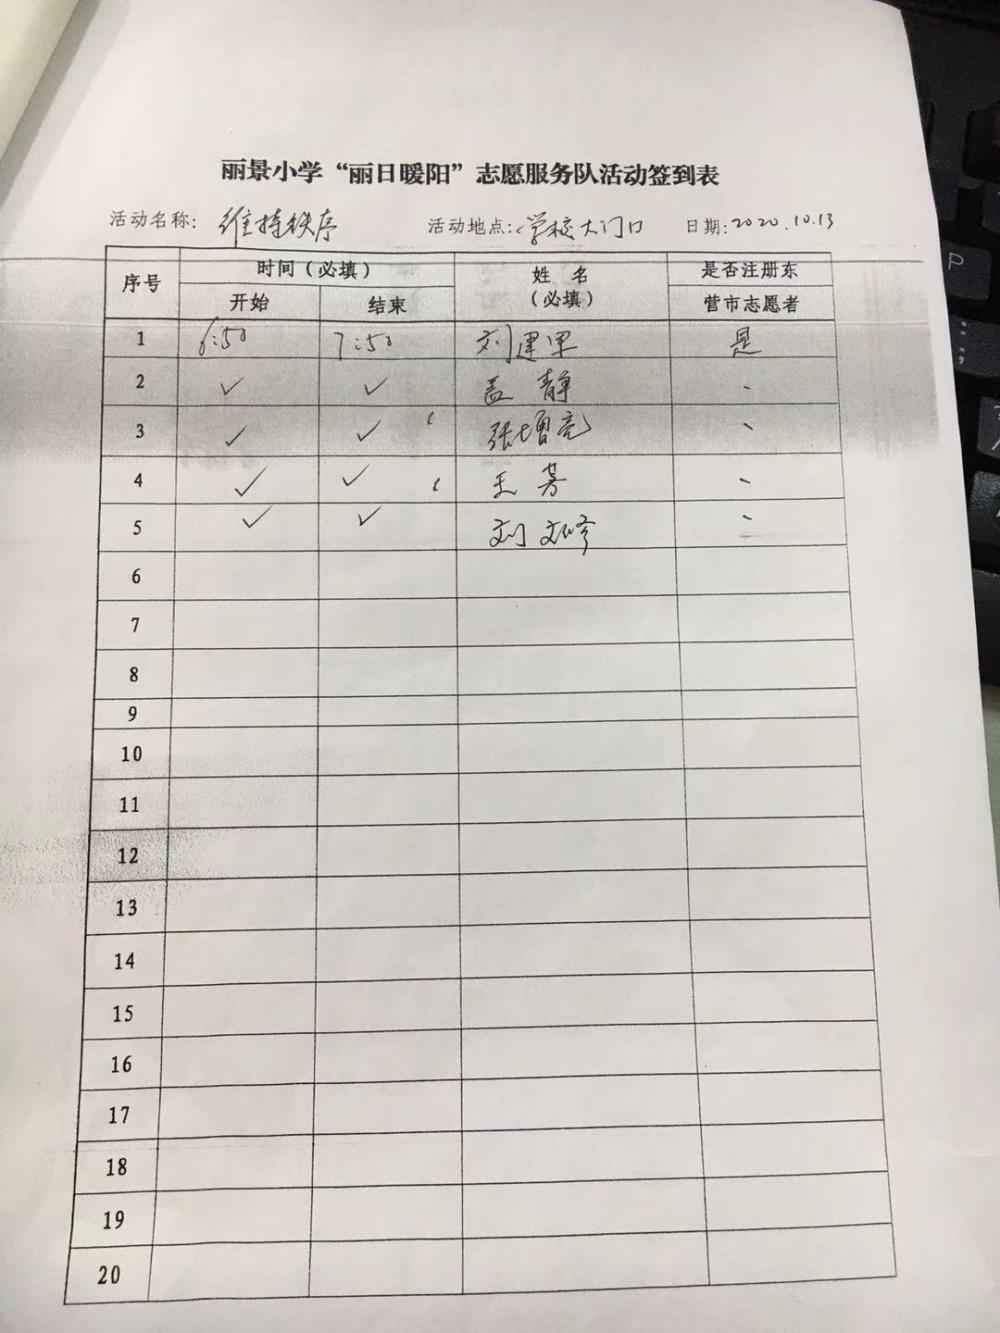 丽景小学“丽日暖阳”志愿服务队活动签到表
活动名称: 维持秩序 活动地点: 学校大门口 日期: 2020.10.13
序号 时间(必填) 姓 名 (必填) 是否注册东营市志愿者
开始 结束
1 6:50 7:50 刘建军 是
2 ✓ ✓ 孟静 、
3 ✓ ✓ 张增亮 、
4 ✓ ✓ 王芳 、
5 ✓ ✓ 刘文修 、
6
7
8
9
10
11
12
13
14
15
16
17
18
19
20
P